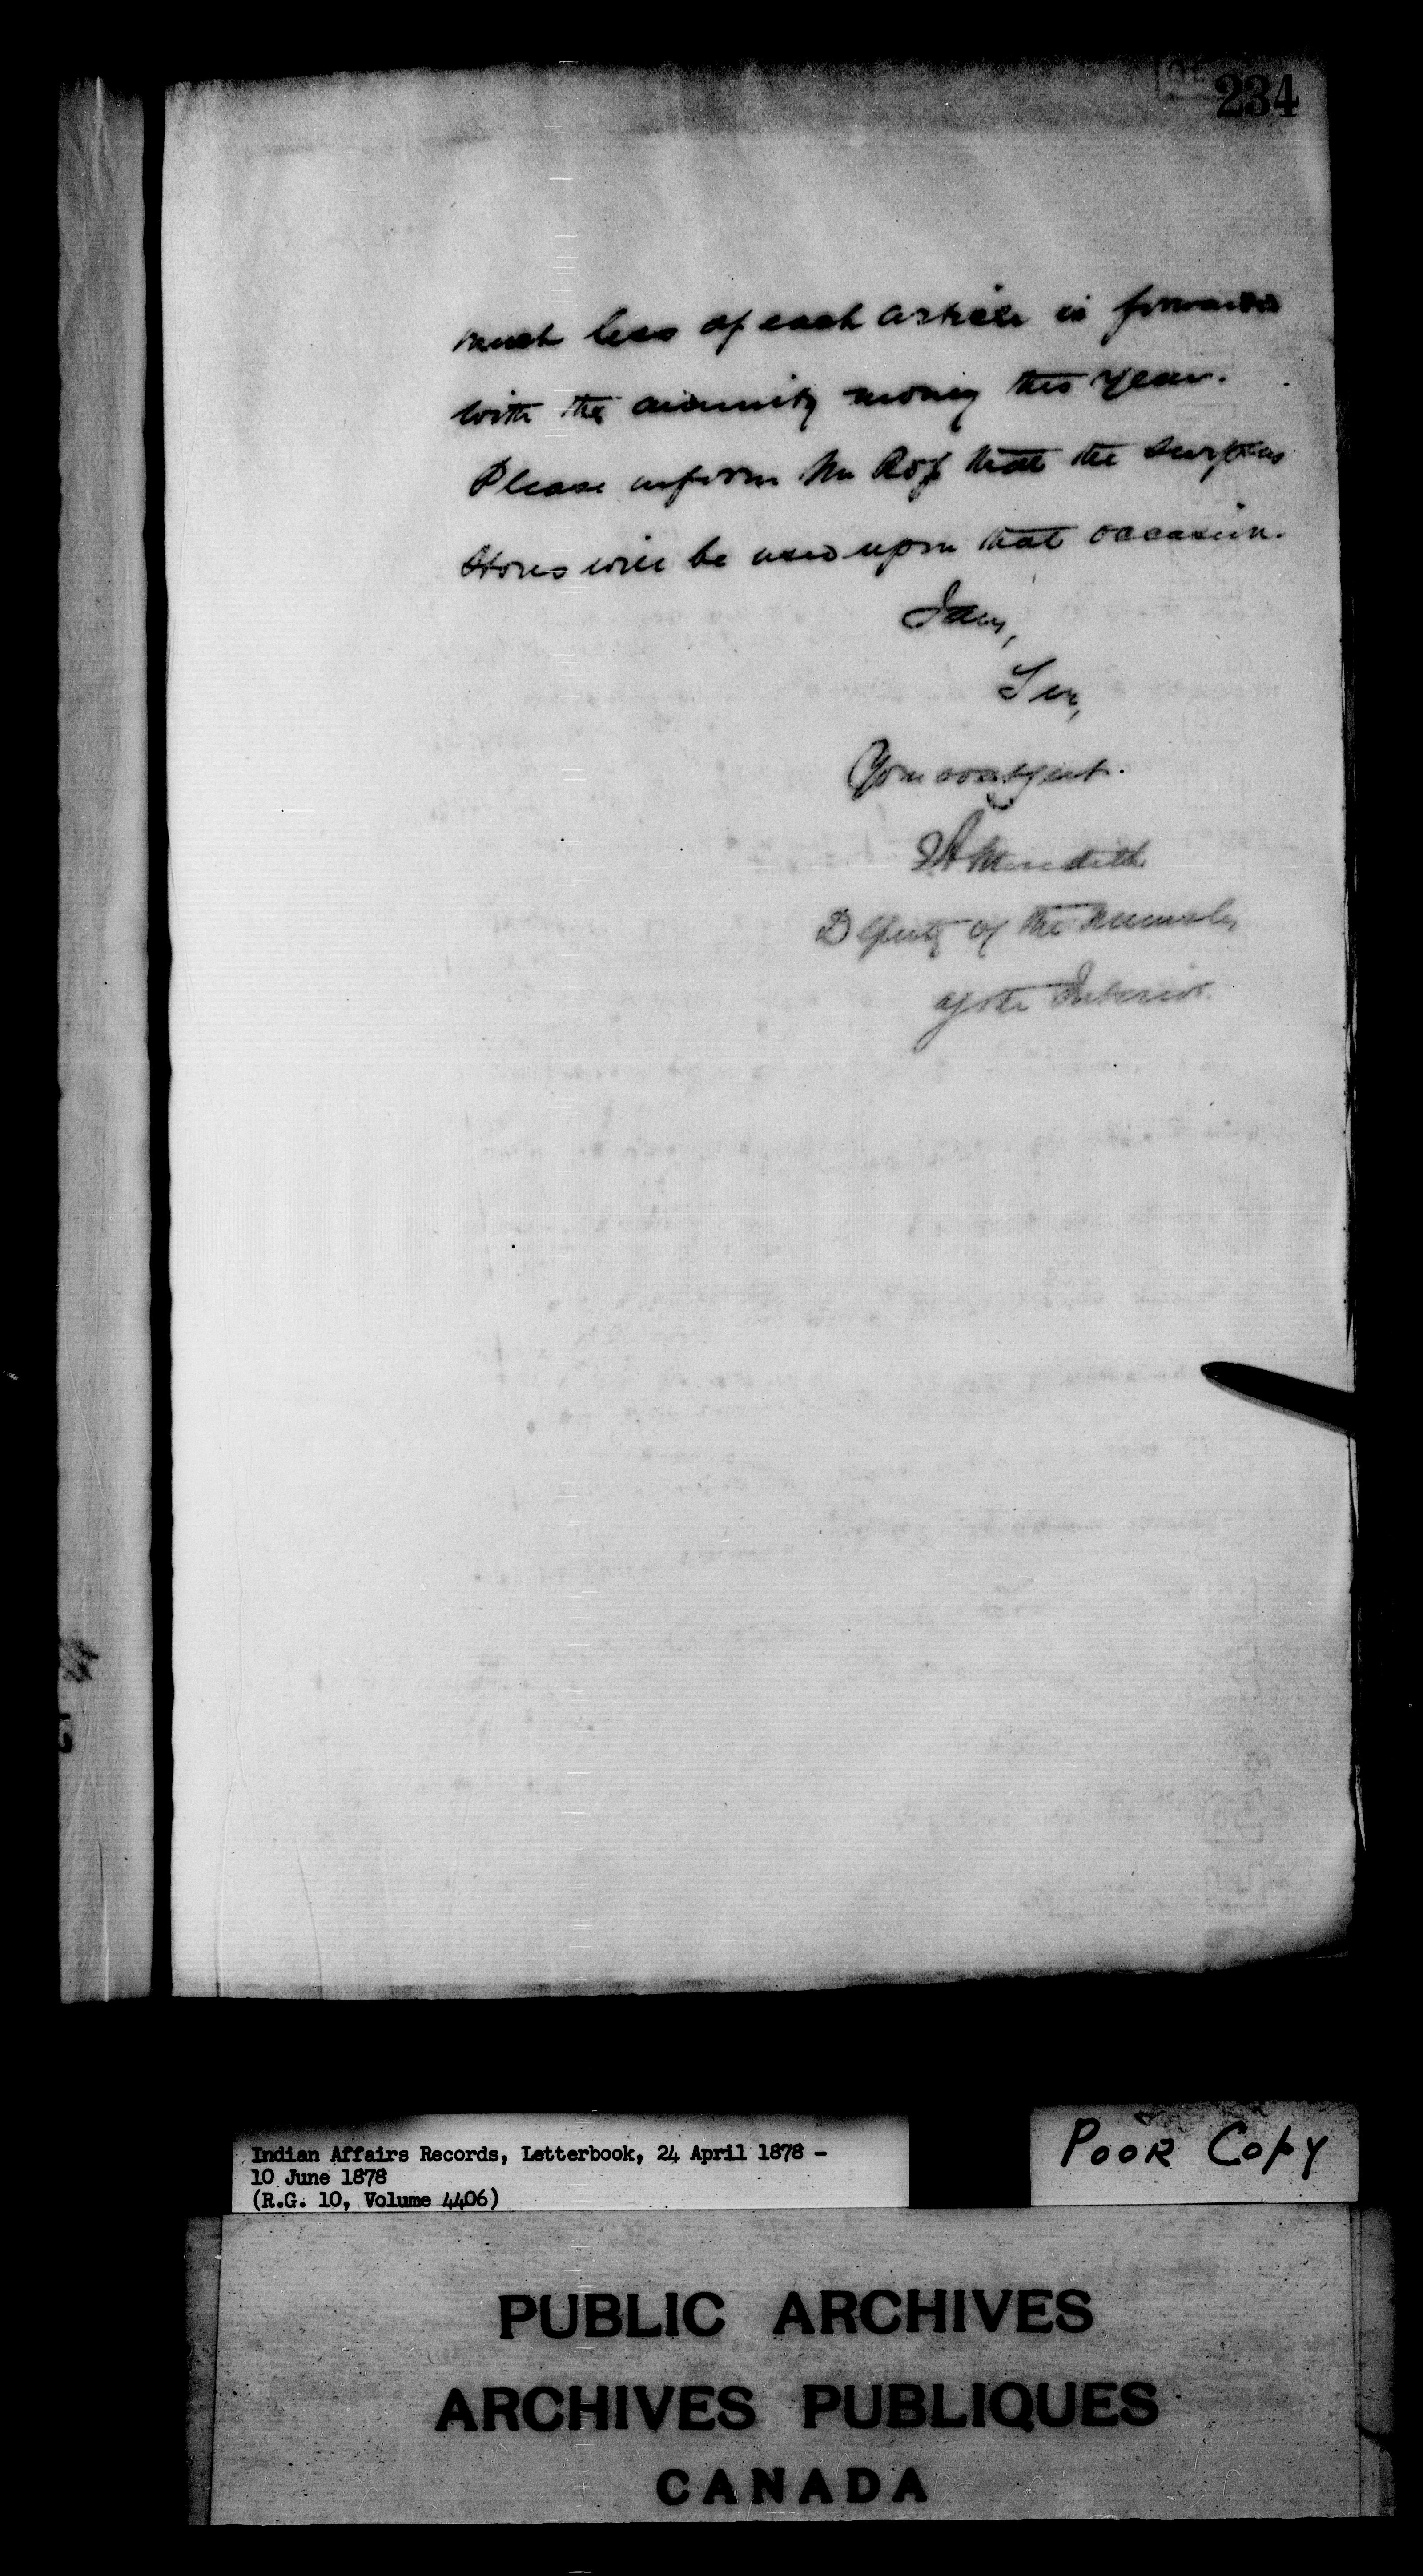 234
much less of each article is forwarded
with the annuity money this year.
Please inform Mr that the surplus
stores will be used upon that occasion.
I am,
Sir,
Your
Meredith
Deputy of the Minister
of the Interior.
Indian Affairs Records, Letterbook, 24 April 1878 -
10 June 1878
(R.G. 10, Volume 4406)
Poor Copy
PUBLIC ARCHIVES
ARCHIVES PUBLIQUES
CANADA